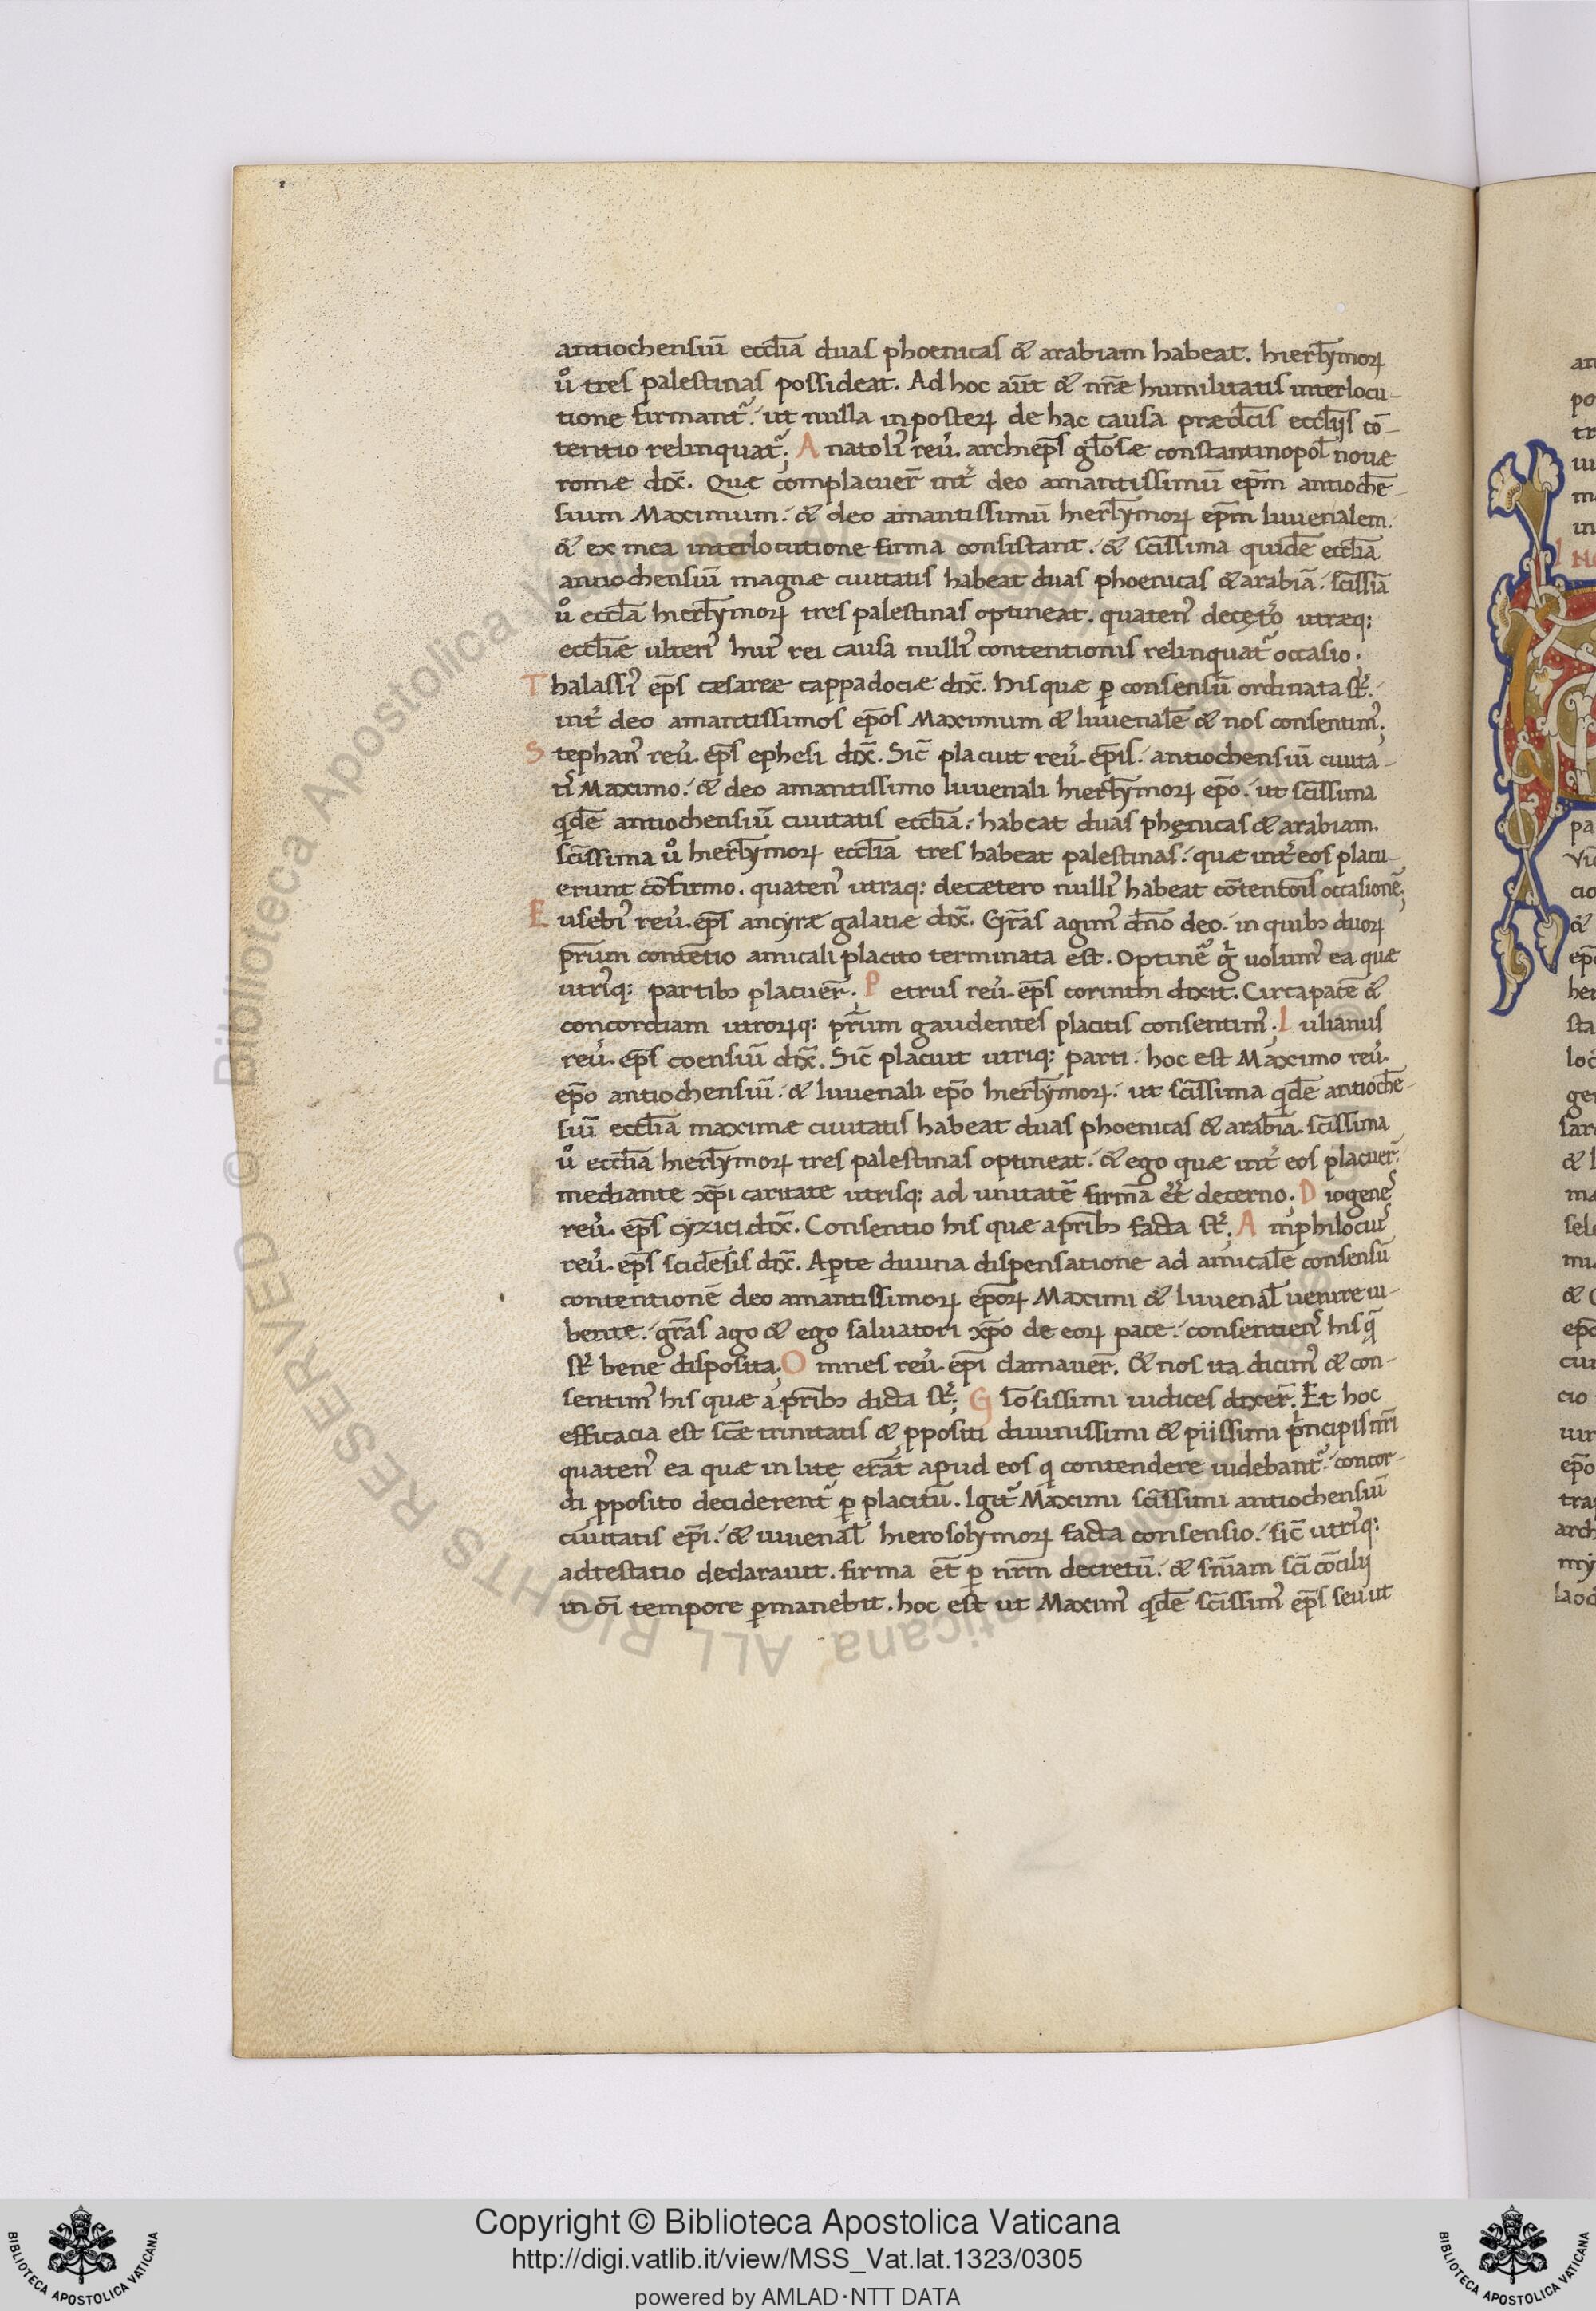 antiochensiū eccl̄ia duas phoenicas & arabiam habeat. hierl̄ymoꝝ
ů tres palestinas possideat. Ad hoc aūt & nr̄æ humilitatis interlocu-
tione firmant᷑. ut nulla in posteꝝ de hac causa prædc̄is eccl̄iis cō-
tentio relinquat᷑; Anatoli᷒ reu̓. archiep̄s gl̄osæ constantinopol̄ nouæ
romæ dix̄. Quæ complacuer̄ int̓ deo amantissimū ep̄m antioch̄e-
sium Maximum. & deo amantissimū hierl̄ymoꝝ ep̄m Iuuenalem.
& ex mea interlocutione firma consistant. & sc̄issima quidē eccl̄ia
antiochensiū magnæ ciuitatis habeat duas phoenicas & arabiā. sc̄issīa
ů eccl̄a hierl̄ymoꝝ tres palestinas optineat. quaten᷒ decęt̓o utræq;
eccl̄iæ ulteri᷒ hui᷒ rei causa nulli᷒ contentionis relinquat᷑ occasio;
Thalassi᷒ ep̄s cæsareæ cappadociæ dix̄. His quæ ꝑ consensū ordinata st̓.
int̓ deo amantissimos ep̄os Maximum & Iuuenalē & nos consentim᷒;
Stephan᷒ reu̓. ep̄s ephesi dix̄. Sic̄ placuit reu̓. ep̄is. antiochensiū ciuita-
ti᷒ Maximo. & deo amantissimo Iuuenali hierl̄ymoꝝ ep̄o. ut sc̄issima
qdē antiochensiū ciuitatis eccl̄ia. habeat duas phęnicas & arabiam.
sc̄issima ů hierl̄ymoꝝ eccl̄ia tres habeat palestinas. quæ int̓ eos placu-
erunt cōfirmo. quaten᷒ utraq; decætero nulli᷒ habeat cōtentōis occasionē;
Eusebi᷒ reu̓. ep̄s ancyræ galatiæ dix̄. Gr̄as agim᷒ dn̄o deo. in quibꝫ duoꝝ
pr̄um contētio amicali placito terminata est. Optinē᷑ g̓ uolum᷒ ea quæ
utriq; partibꝫ placuer̄. Petrus reu̓. ep̄s corinthi dixit. Circa pacē &
concordiam utroꝝq; pr̄um gaudentes placitis consentim᷒. Iulianus
reu̓. ep̄s coensiū dix̄. Sic̄ placuit utriq; parti. hoc est Maximo reu̓.
ep̄o antiochensiū. & Iuuenali ep̄o hierl̄ymoꝝ. ut sc̄issima qdē antioch̄e-
siū eccl̄ia maximæ ciuitatis habeat duas phoenicas & arabīa. sc̄issima
ů eccl̄ia hierl̄ymoꝝ tres palestinas optineat. & ego quæ int̓ eos placuer̄.
mediante xp̄i caritate utrisq; ad unitatē firma e̓ē decerno. Diogene᷒
reu̓. ep̄s cyzici dix̄. Consentio his quæ a pr̄ibꝫ facta st̓; Amphilociu᷒
reu̓. ep̄s scidēsis dix̄. Aperte diuina dispensatione ad amicalē consensū
contentionē deo amantissimoꝝ ep̄oꝝ Maximi & Iuuenal̄ uenire iu-
bente. gr̄as ago & ego saluatori xp̄o de eoꝝ pace. consentiens his q̄
st̓ bene disposita; Omnes reu̓. ep̄i clamauer̄. & nos ita dicim᷒ & con-
sentim᷒ his quæ a pr̄ibꝫ dicta st̓; Gl̄osissimi iudices dixer̄. Et hoc
efficacia est sc̄æ trinitatis & ꝓpositi diuinissimi & piissimi pͥncipis nr̄i
quaten᷒ ea quæ in lite erāt apud eos qͥ contendere uidebant᷑. concor-
di ꝓposito deciderent᷑ ꝑ placitū. Igit᷑ Maximi sc̄issimi antiochensiū
ciuitatis ep̄i. & iuuenal̄ hierosolymoꝝ facta consensio. sic̄ utriq;
adtestatio declarauit. firma ēt ꝑ nr̄m decretū. & sn̄iam sc̄i cōcilij
in ōi tempore ꝑmanebit. hoc est ut Maxim᷒ qdē sc̄issim᷒ ep̄s seu ut
Copyright © Biblioteca Apostolica Vaticana
http://digi.vatlib.it/view/MSS_Vat.lat.1323/0305
powered by AMLAD·NTT DATA